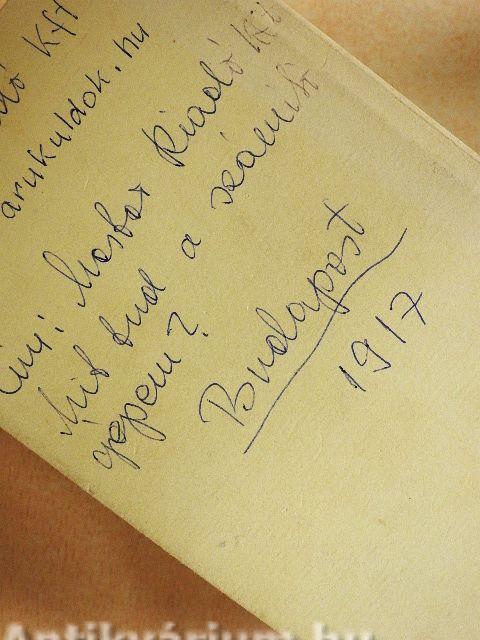 Kft
arukuldok.hu
Cím: Mosbar Kiadó Kft
Mit tud a számító
gépem?
Budapest
1917
Antikvárium.hu